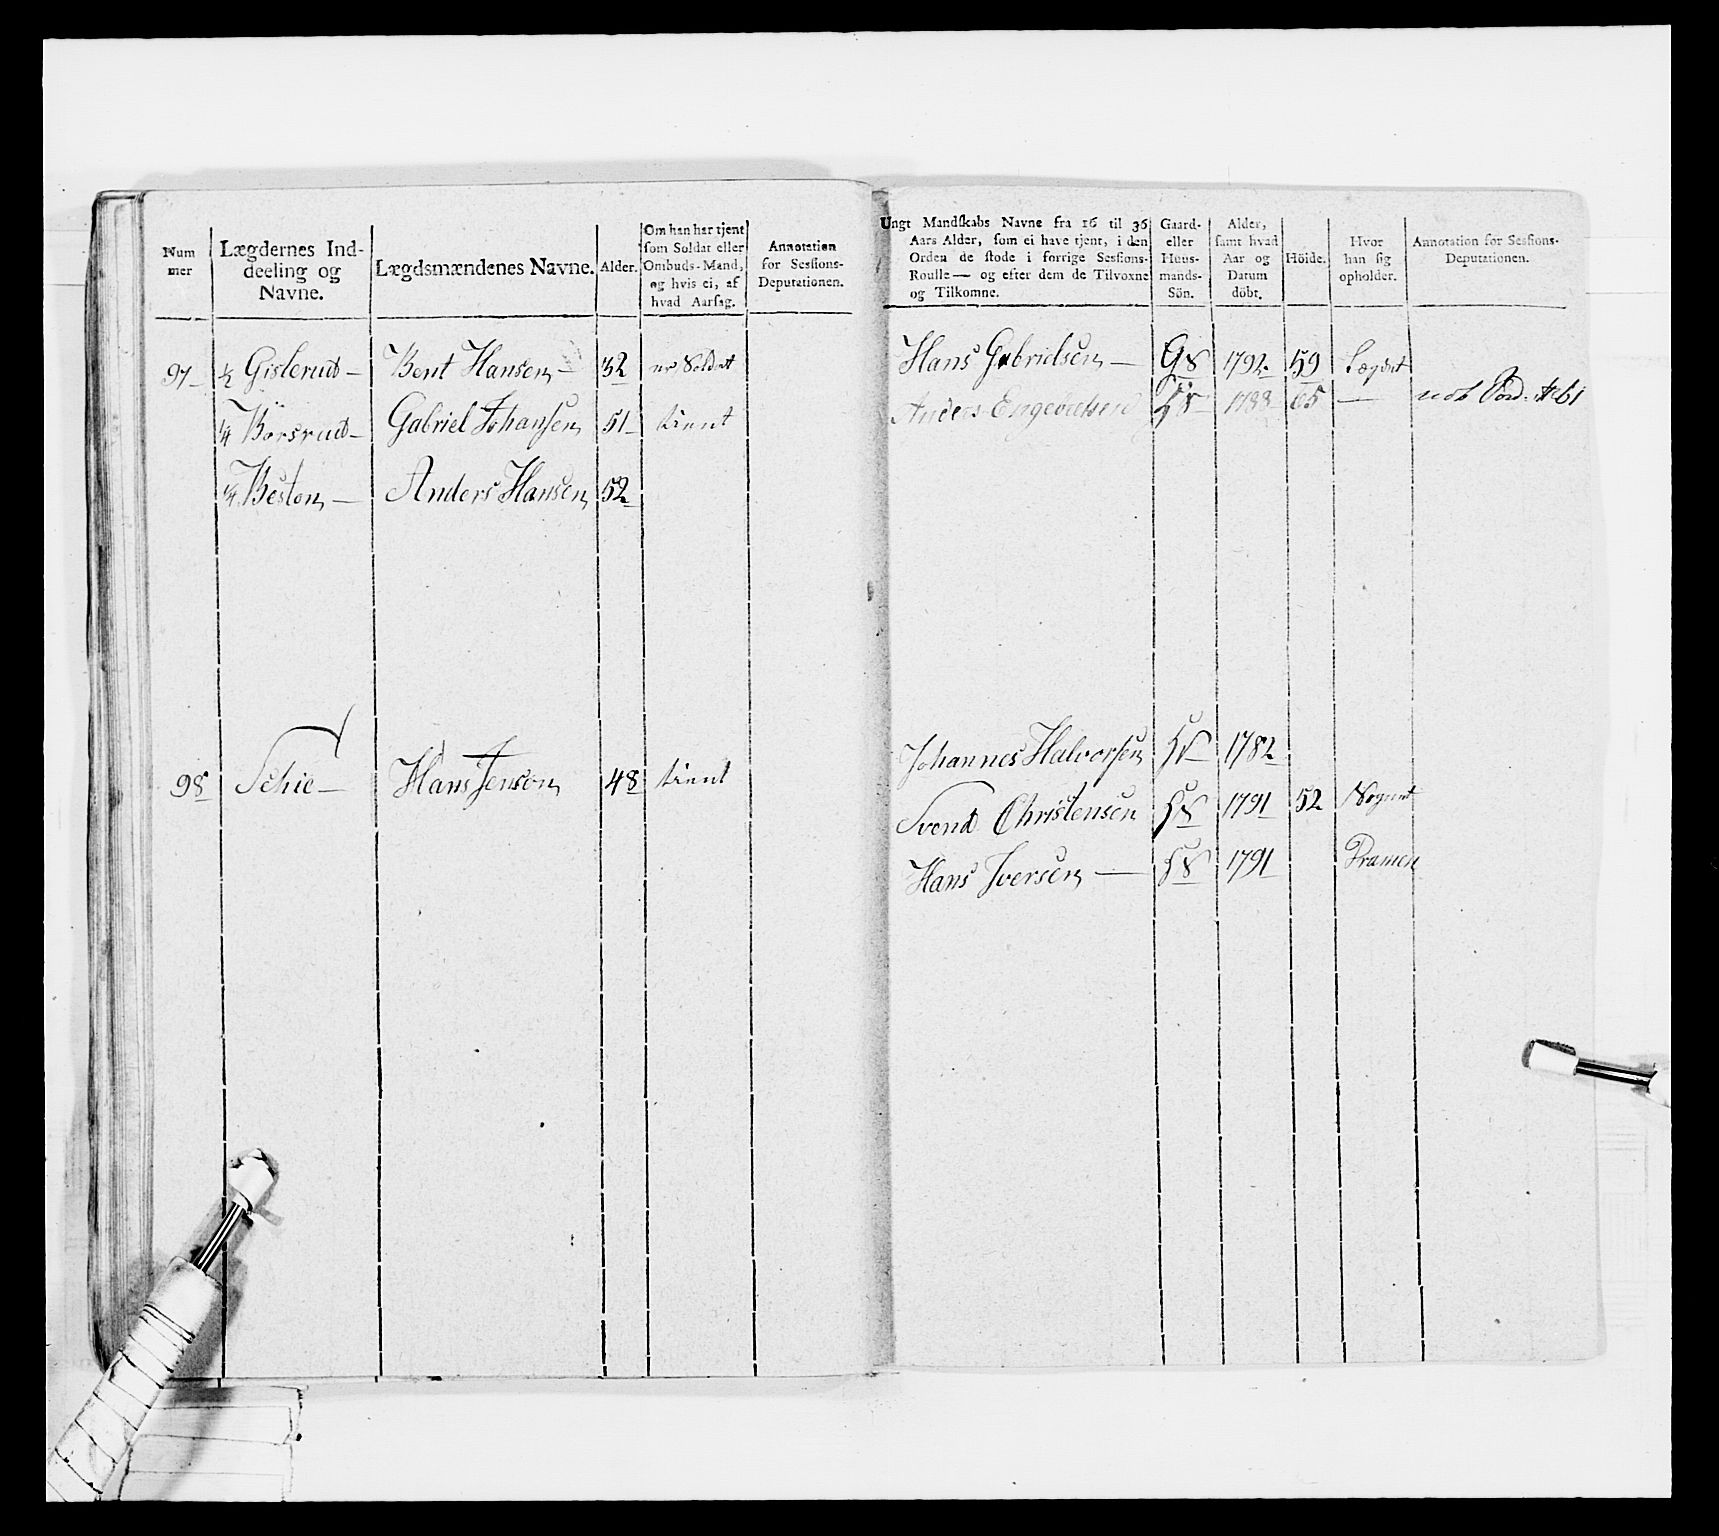 Num
mer
Lægdernes Ind-
deeling og
Navne.
Lægdsmændenes Navne.
Alder.
Om han har tjent
som Soldat eller
Ombuds-Mand,
og hvis ei, af
hvad Aarsag.
Annotation
for Sessions-
Deputationen.
97 ½ Gislerud Bent Hansen 32 er Soldat
¼ Börsrud Gabriel Johansen 51 tient
¼ Beston Anders Hansen 52
98 Schie Hans Jenson 48 tient
Ungt Mandskabs Navne fra 16 til 36
Aars Alder, som ei have tjent, i den
Orden de stode i forrige Sessions-
Roulle — og efter dem de Tilvoxne
og Tilkomne.
Gaard-
eller
Huus-
mands-
Sön.
Alder,
samt hvad
Aar og
Datum
döbt.
Höide.
Hvor
han sig
opholder.
Annotation for Sessions-
Deputationen.
Hans Gabrielsen — G S 1792 59 Lægdet
Anders Engebretsen H S 1788 65 —
Johannes Halvorsen H S 1782
Svend Christensen H S 1791 52
Hans Iversen — H S 1791 Dramen